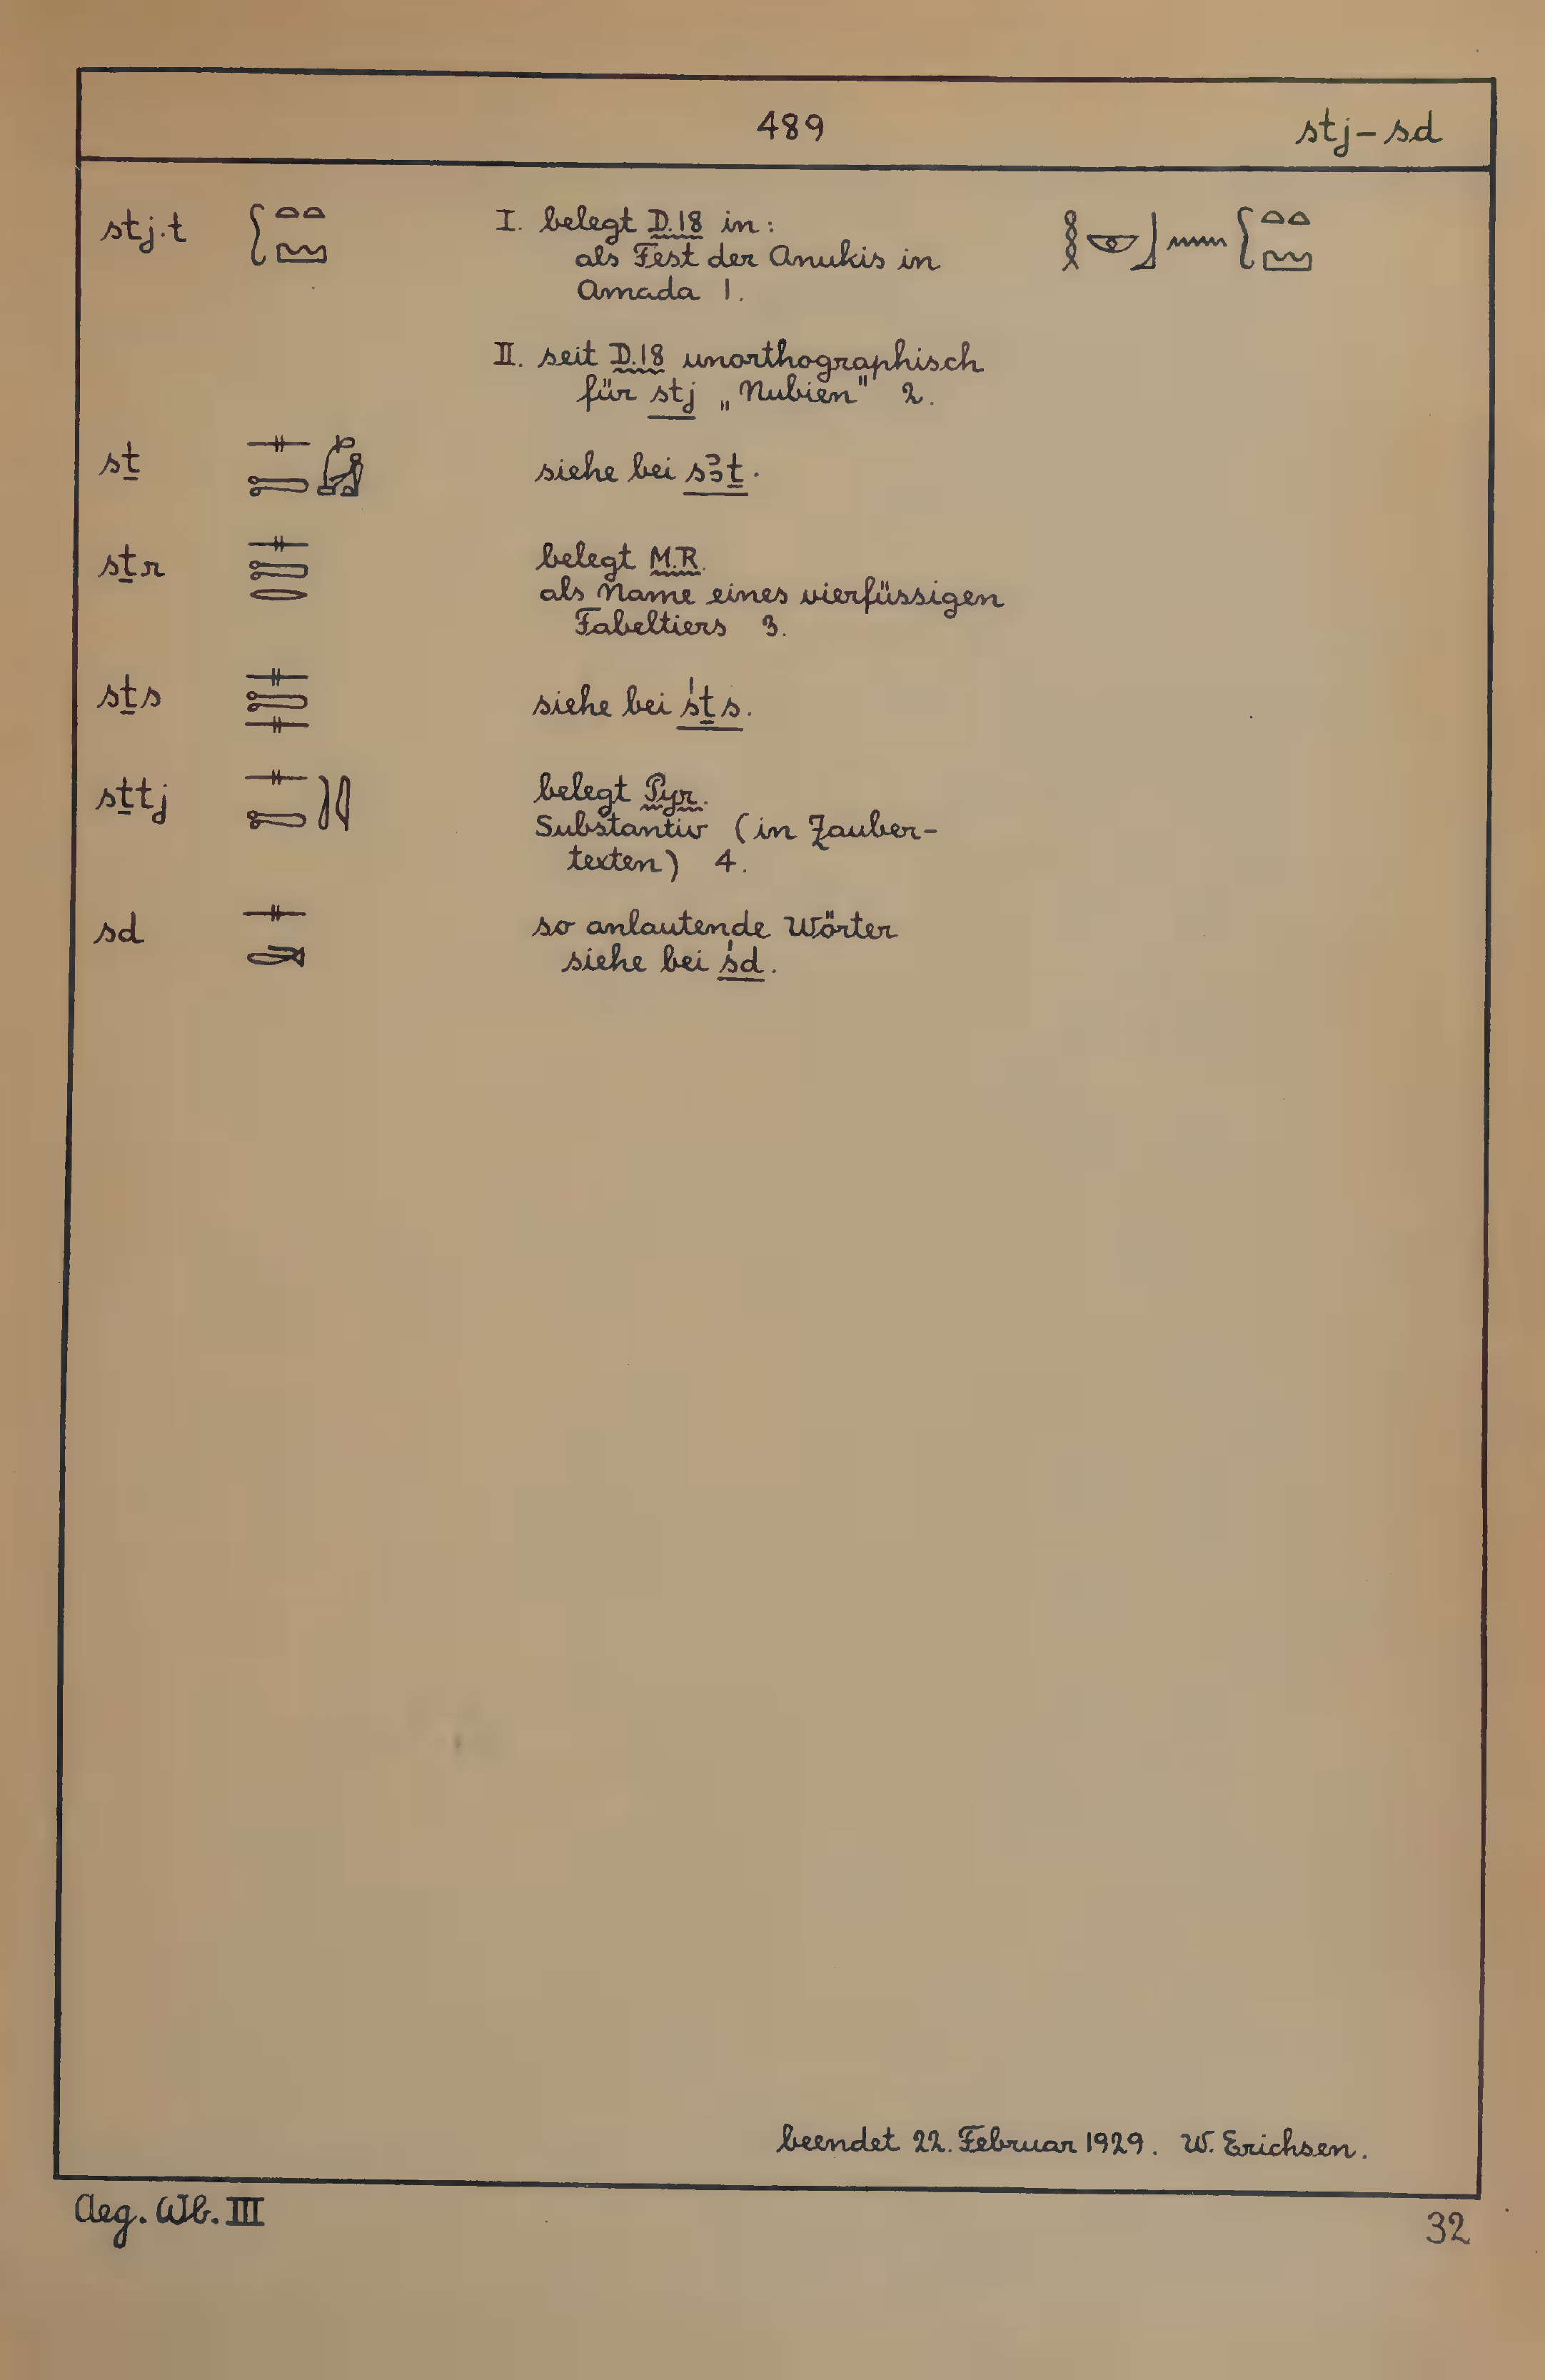 489
stj – sd
stj.t 𓋴𓏏𓏏𓈉 I. belegt D.18 in: 𓎛𓎱𓃀𓈖𓋴𓏏𓏏𓈉
als Fest der Anukis in
Amada 1.
II. seit D.18 unorthographisch
für stj „Nubien" 2.
sṯ 𓊃𓍿 siehe bei sꜣṯ.
sṯr 𓊃𓍿𓂋 belegt M.R.
als Name eines vierfüssigen
Fabeltiers 3.
sṯs 𓊃𓍿𓊃 siehe bei śṯs.
sṯtj 𓊃𓍿 belegt Pyr.
Substantiv (in Zauber-
texten) 4.
sd 𓊃𓂧 so anlautende Wörter
siehe bei śd.
beendet 22. Februar 1929. W. Erichsen.
Aeg. Wb. III
32